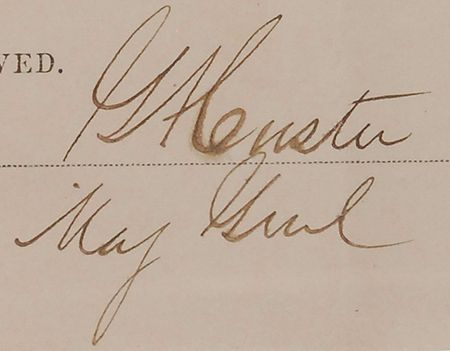 VED.
GACuster
Maj Genl